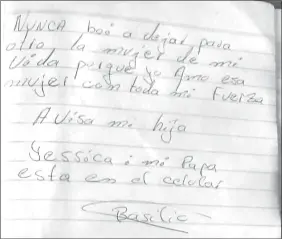 NUNCA boi a dejar para
otro la mujer de mi
Vida porque yo Amo esa
mujer com toda mi Fuerza
AVisa mi hija
Yessica i mi Papa
esta en el celular
Basilio